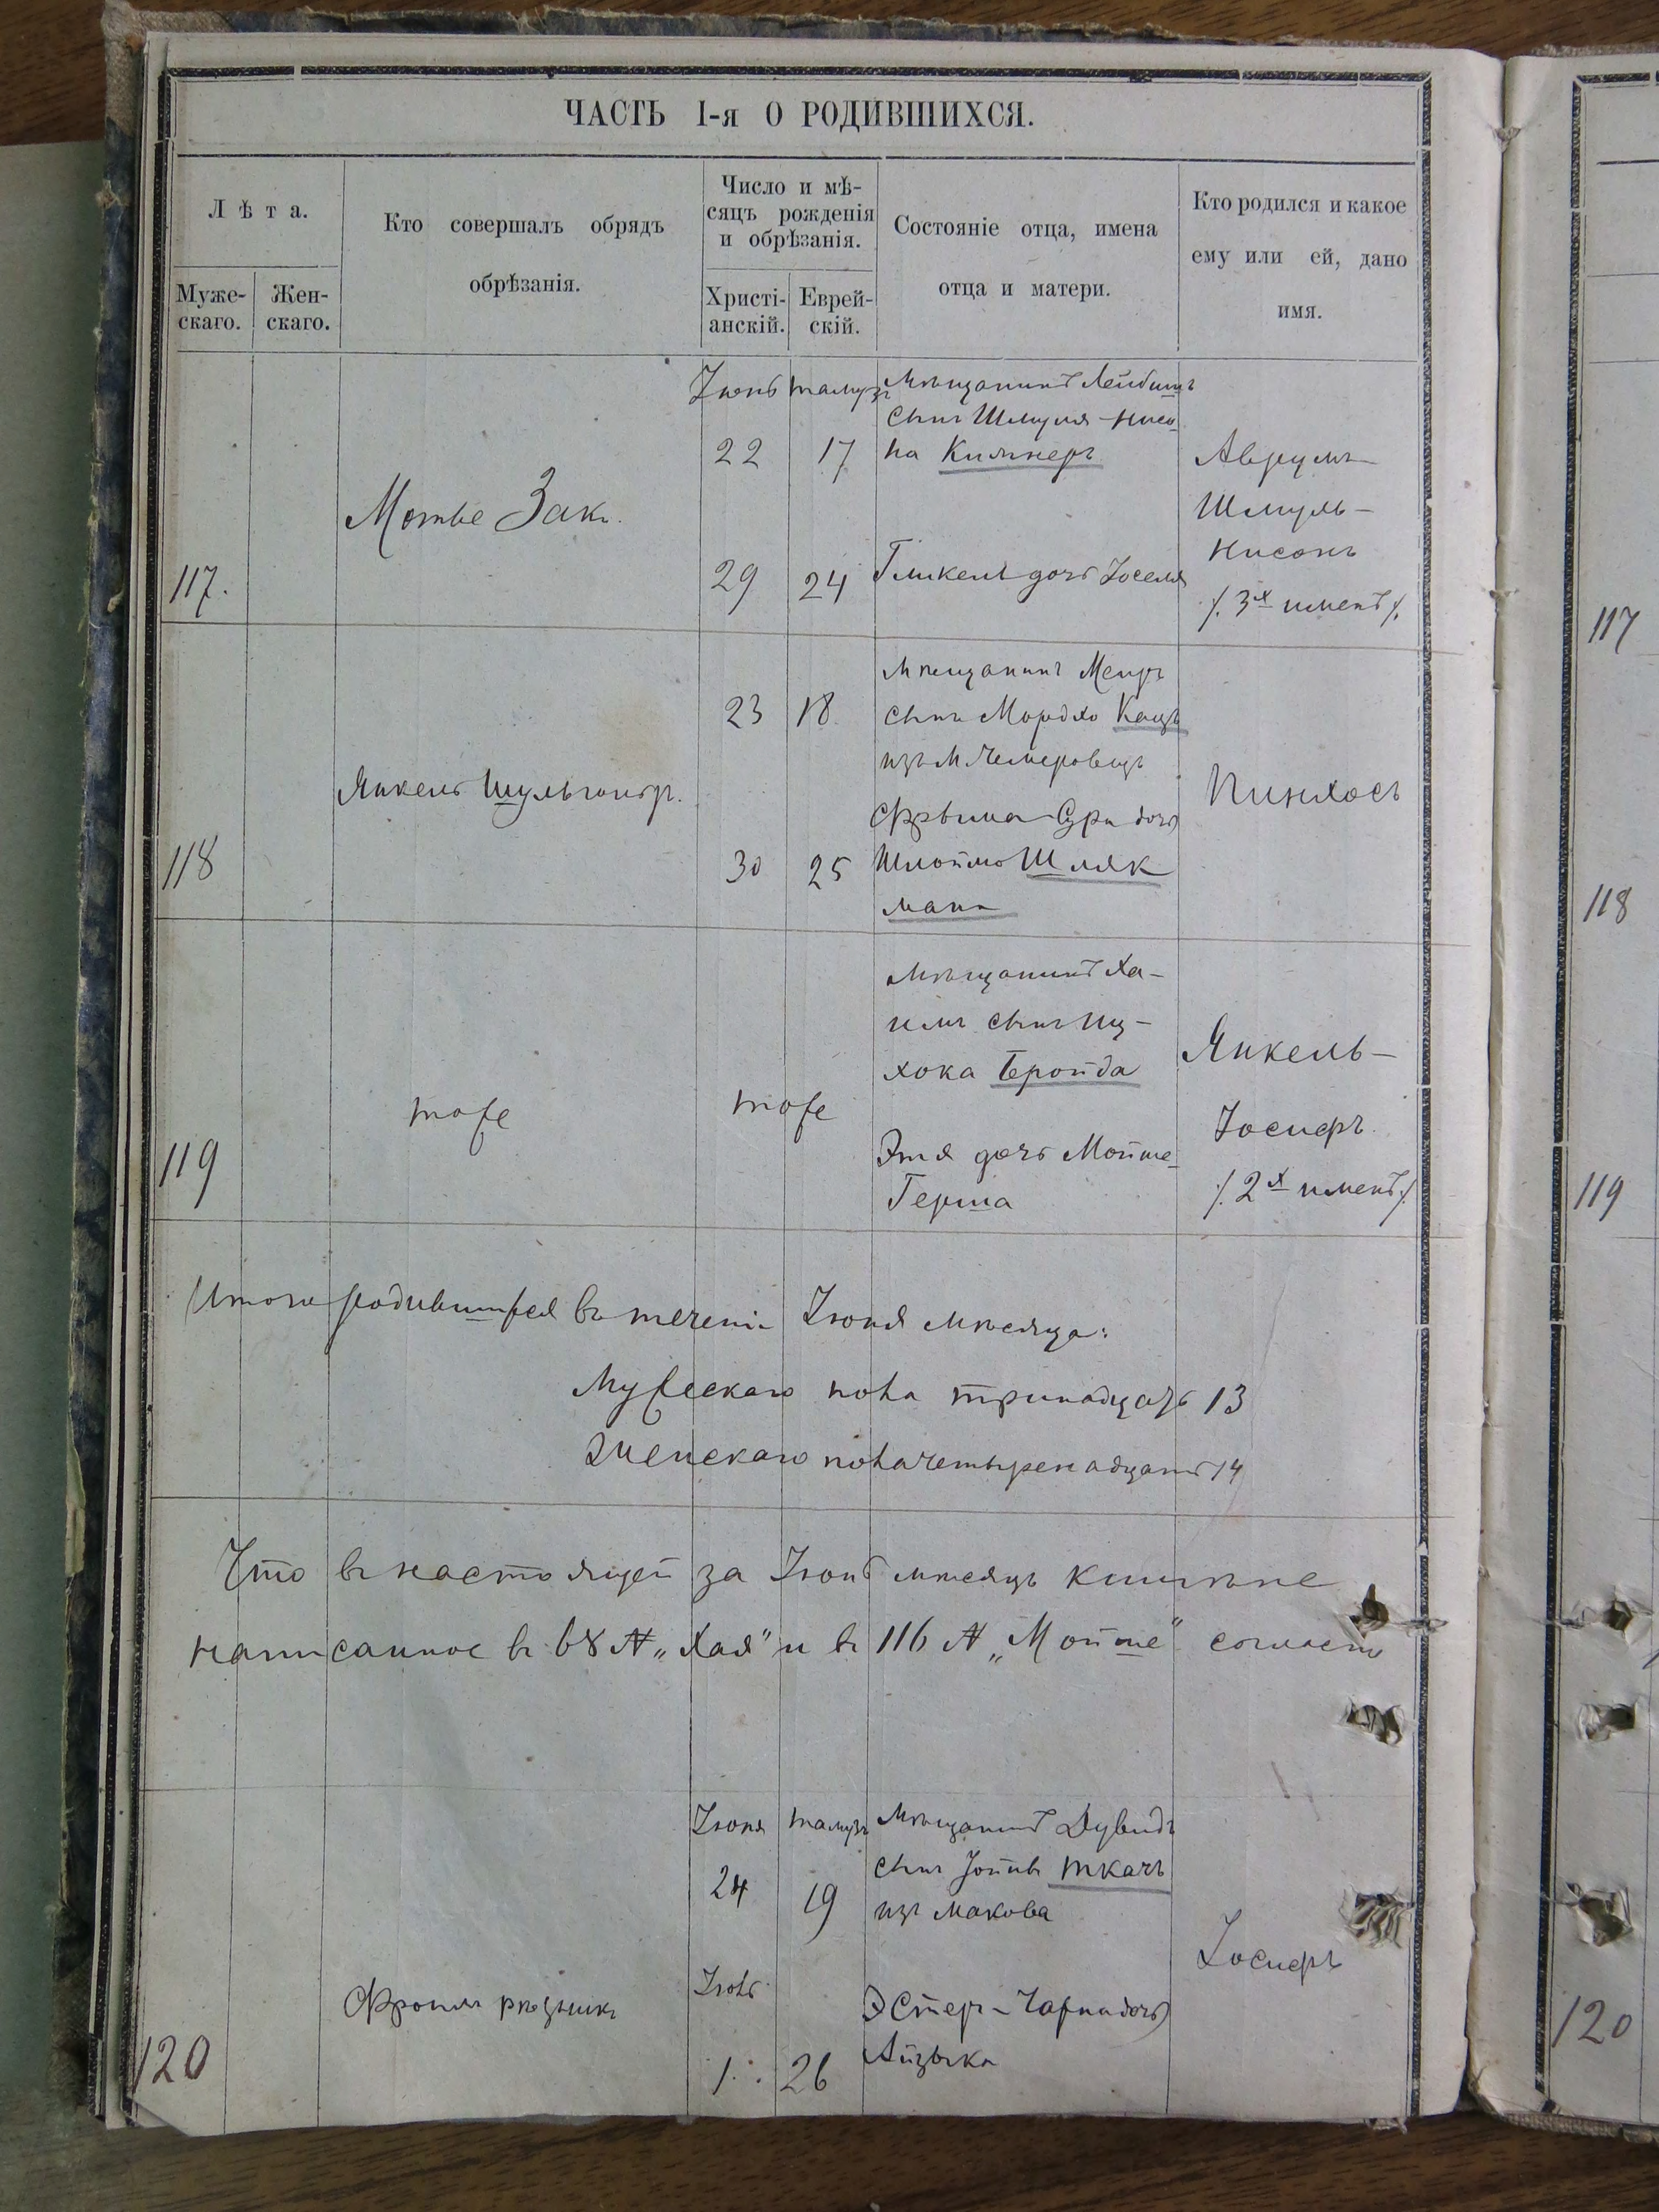 ЧАСТЬ I-я О РОДИВШИХСЯ.
Лѣта.
Муже-
скаго.
Жен-
скаго.
Кто совершалъ обрядъ
обрѣзанія.
Число и мѣ-
сяцъ рожденія
и обрѣзанія.
Христі-
анскій.
Еврей-
скій.
Состояніе отца, имена
отца и матери.
Кто родился и какое
ему или ей, дано
имя.
117.
Мотье Закъ.
Іюнь
22
29
тамузъ
17
24
мѣщанинъ Лейбишъ
сынъ Шмуля-Нисо-
на
Гликель дочь Іоселя
Аврумъ-
Шмуль-
Нисонъ
/. 3х именъ /.
117
118
Янкель
23 18
30 25
мѣщанинъ Меиръ
сынъ Мордхо Кацъ
изъ м Чемеровецъ
Фрыма-Сура дочь
Шлоймо Шляк
манъ
Пинхосъ
118
119
тоже
тоже
мѣщанинъ Ха-
имъ сынъ Иц-
хока Бройда
Этя дочь Мойше-
Герша
Янкель-
Іосифъ
/. 2х именъ /.
119
Итого родившихся въ теченіи Іюня мѣсяца:
Мужескаго пола тринадцать 13
Женскаго пола четырнадцать 14
Что въ настоящей за Іюнь мѣсяцъ книгѣ
написанное въ № „Хая" и въ 116 № „Мойше" согласно
120
Фроимъ рѣзникъ
Іюня
24
Іюль
1.
тамузъ
19
26
мѣщанинъ Дувидъ
сынъ Ткачъ
изъ Макова
Эстер-Чарна дочь
Айзыка
Іосифъ
120